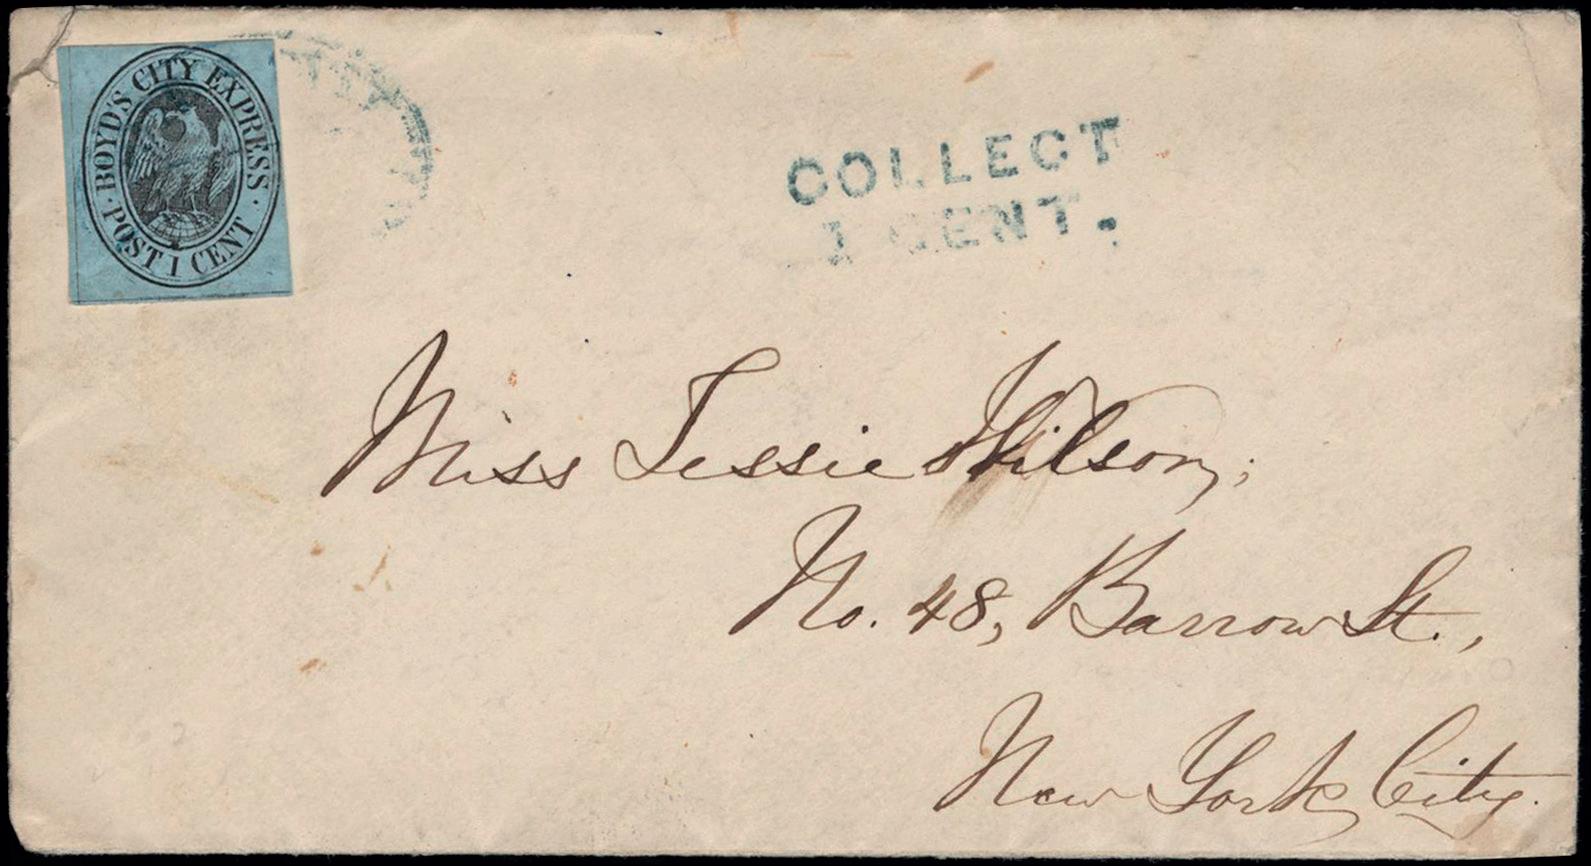 BOYD'S CITY EXPRESS
· POST 1 CENT ·
COLLECT
1 CENT.
Miss Jessie Wilson,
No. 48, Barrow St.,
New York City.